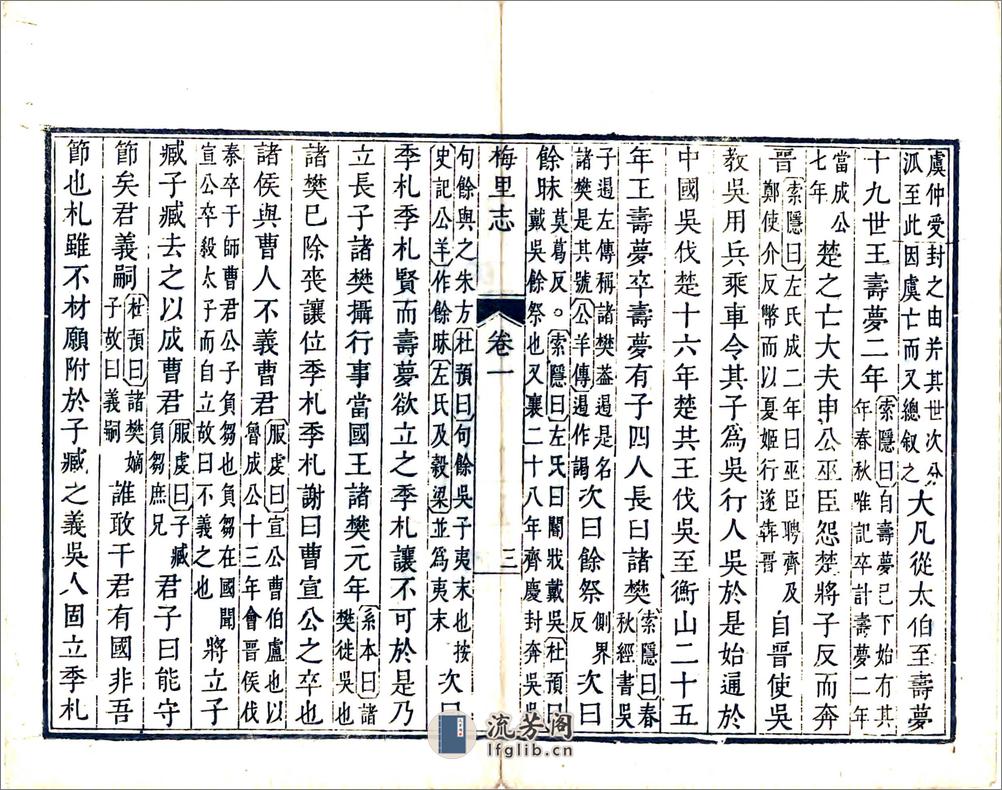 虞仲受封之由并其世次分泒至此因虞亡而又總叙之大凡從太伯至壽夢
十九世王壽夢二年索隱曰自壽夢已下始有其年春秋唯記卒計壽夢二年
當成公七年楚之亡大夫申公巫臣怨楚將子反而奔
晉索隱曰左氏成二年曰巫臣聘齊及鄭使介反幣而以夏姬行遂奔晉自晉使吳
教吳用兵乘車令其子為吳行人吳於是始通於
中國吳伐楚十六年楚共王伐吳至衡山二十五
年王壽夢卒壽夢有子四人長曰諸樊索隱曰春秋經書吳
子遏左傳稱諸樊葢遏是名諸樊是其號公羊傳遏作謁次曰餘祭側界反次曰
餘昧莫葛反。索隱曰左氏曰閽戕戴吳杜預曰戴吳餘祭也又襄二十八年齊慶封奔吳
梅里志 卷一 三
句餘與之朱方杜預曰句餘吳子夷末也按史記公羊作餘昧左氏及穀梁並為夷末次曰
季札季札賢而壽夢欲立之季札讓不可於是乃
立長子諸樊攝行事當國王諸樊元年系本曰諸樊徙吳也
諸樊已除喪讓位季札季札謝曰曹宣公之卒也
諸侯與曹人不義曹君服虔曰宣公曹伯盧也以魯成公十三年會晉侯伐
秦卒于師曹君公子負芻也負芻在國聞宣公卒殺太子而自立故曰不義之也將立子
臧子臧去之以成曹君服虔曰子臧負芻庶兄君子曰能守
節矣君義嗣杜預曰諸樊嫡子故曰義嗣誰敢干君有國非吾
節也札雖不材願附於子臧之義吳人固立季札
流芳阁
lfglib.cn